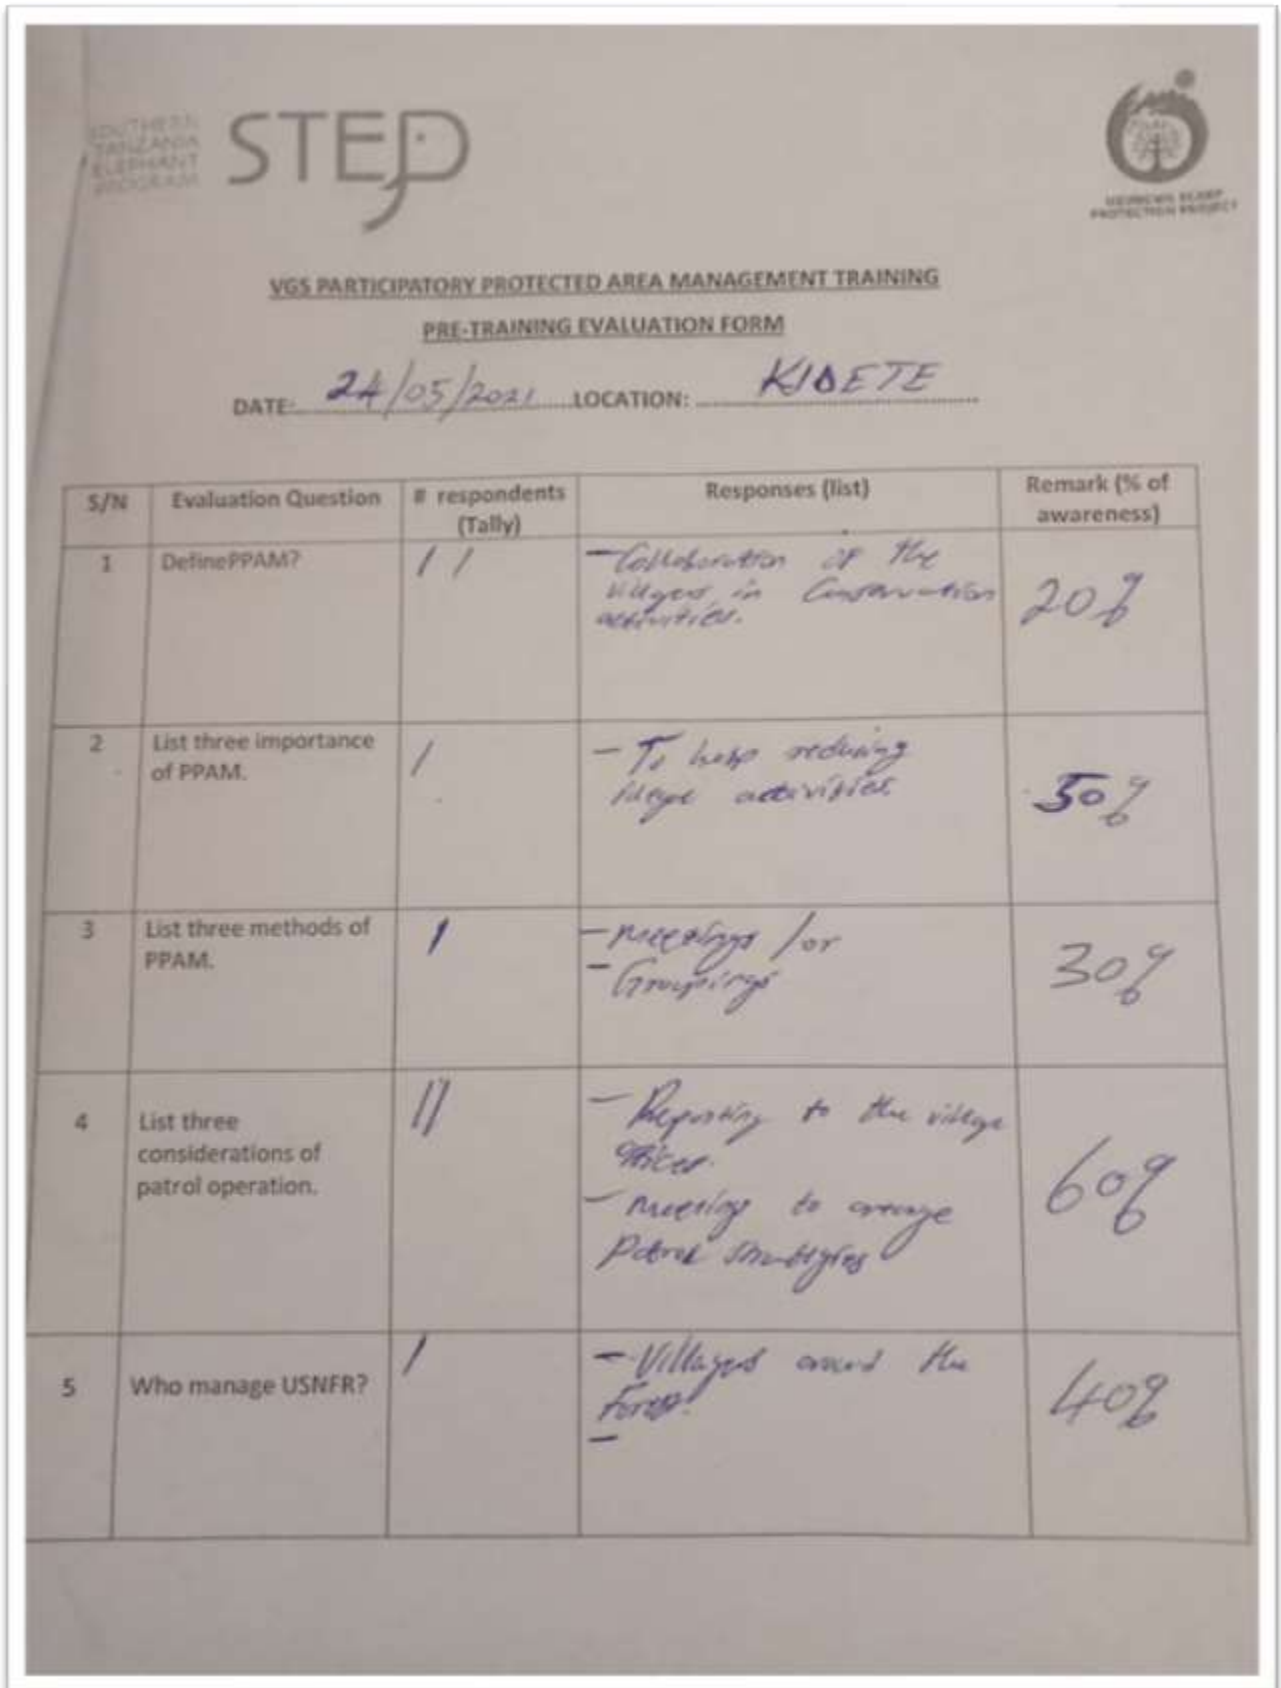 SOUTHERN
TANZANIA
ELEPHANT
PROGRAM
STEP
UDZUNGWA SCARP
PROTECTION PROJECT
VGS PARTICIPATORY PROTECTED AREA MANAGEMENT TRAINING
PRE-TRAINING EVALUATION FORM
DATE: 24/05/2021 LOCATION: KIDETE
S/N Evaluation Question # respondents (Tally) Responses (list) Remark (% of awareness)
1 DefinePPAM? // – Collaboration of the
villagers in Conservation
activities.
20%
2 List three importance
of PPAM.
/ – To help reducing
activities.
50%
3 List three methods of
PPAM.
/ – meetings / or
– Groupings
30%
4 List three
considerations of
patrol operation.
// – Reporting to the village
offices.
– meeting to arrange
Patrol
60%
5 Who manage USNFR? / – Villagers around the
Forest.
–
40%